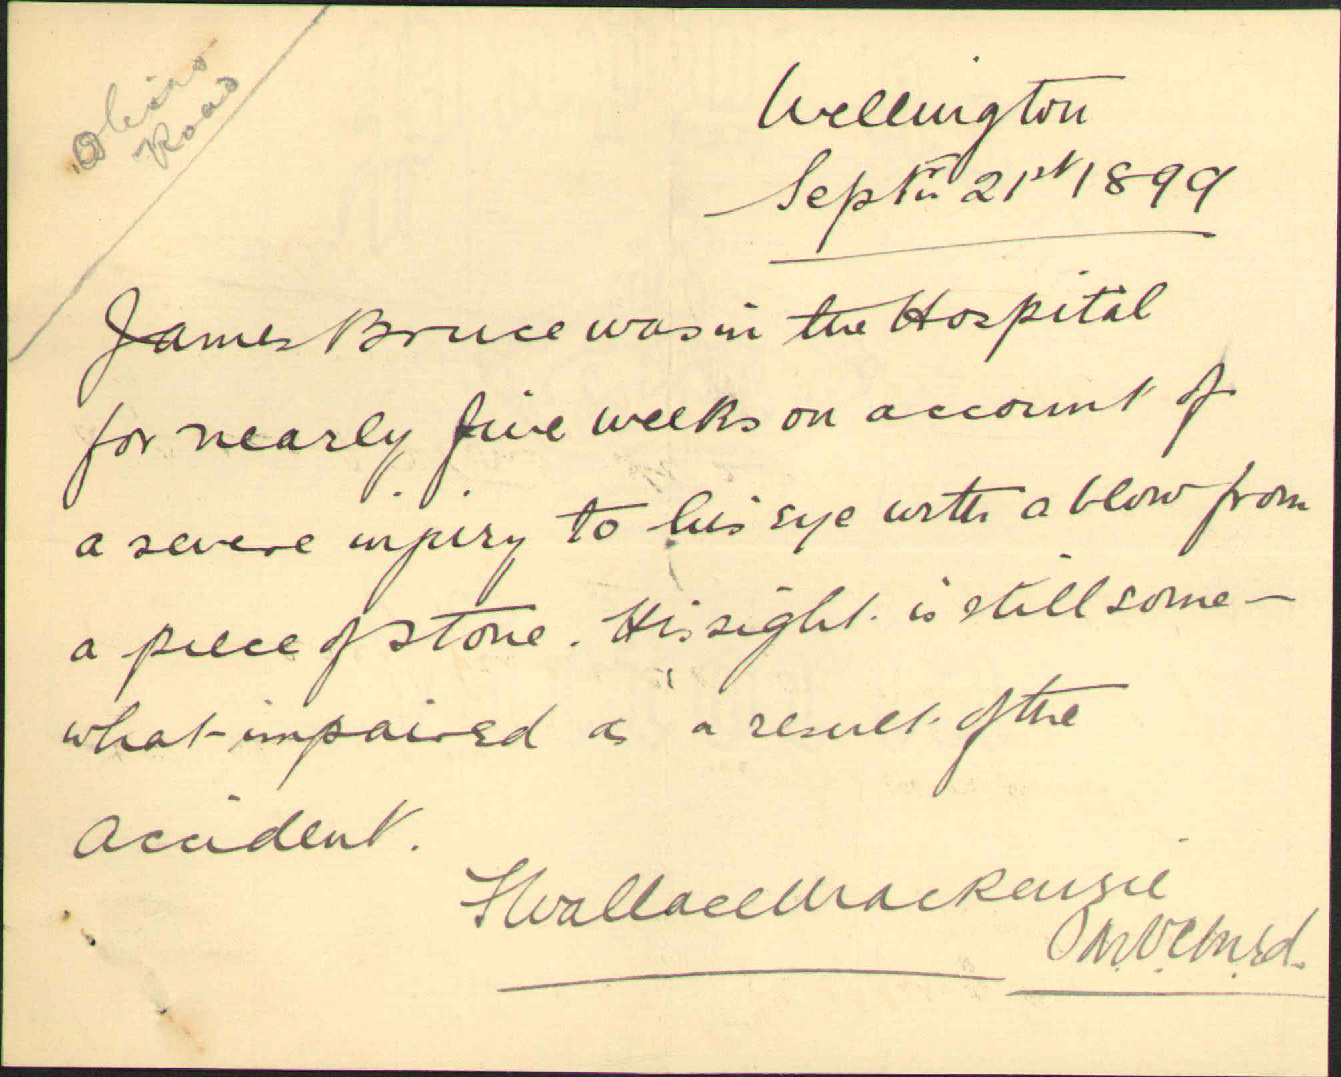 Ohiro
Road
Wellington
Septr 21st 1899
James Bruce was in the Hospital
for nearly five weeks on account of
a severe injury to his eye with a blow from
a piece of stone. His sight is still some-
what impaired as a result of the
accident.
Wallace Mackenzie